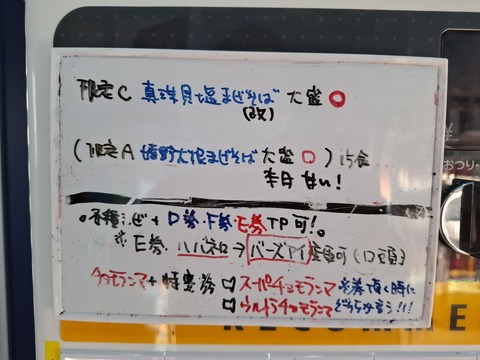 限定C 真珠貝塩まぜそば 大盛○
(改)
(限定A 嬉野大根まぜそば 大盛○) 15食
本日 甘い!
。各種まぜ + D券・F券・E券 TP可!。
※ E券. ハバネロ→バーズアイ 変更可 (1ロ頭)
チョモランマ + 特製券 □スーパーチョモランマ ※券頂く時に
□ウルトラチョモランマ どちらか言う!!!
おつり・